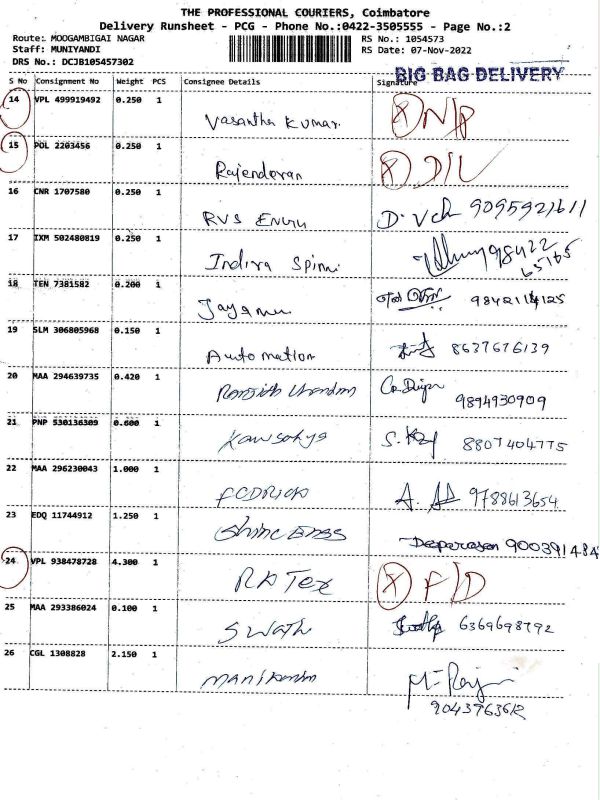 THE PROFESSIONAL COURIERS, Coimbatore
Delivery Runsheet - PCG - Phone No.:0422-3505555 - Page No.:2
Route: MOOGAMBIGAI NAGAR RS No.: 1054573
Staff: MUNIYANDI RS Date: 07-Nov-2022
DRS No.: DCJB105457302
BIG BAG DELIVERY
S No Consignment No Weight PCS Consignee Details Signature
14 VPL 499919492 0.250 1 Vasantha Kumar. X N/P
15 POL 2203456 0.250 1 Rajenderan X D/L
16 CNR 1707580 0.250 1 RVS 9095921611
17 IXM 502480819 0.250 1 Indira Spinni 98422
65765
18 TEN 7381582 0.200 1 9842114125
19 SLM 306805968 0.150 1 Automation 8637676139
20 MAA 294639735 0.420 1
9894930909
21 PNP 530136309 0.600 1 Kawsalya 8807404775
22 MAA 296230043 1.000 1 9788613654
23 EDQ 11744912 1.250 1 900391484
24 VPL 938478728 4.300 1 Tex X F/D
25 MAA 293386024 0.100 1 Swath 6369698792
26 CGL 1308828 2.150 1